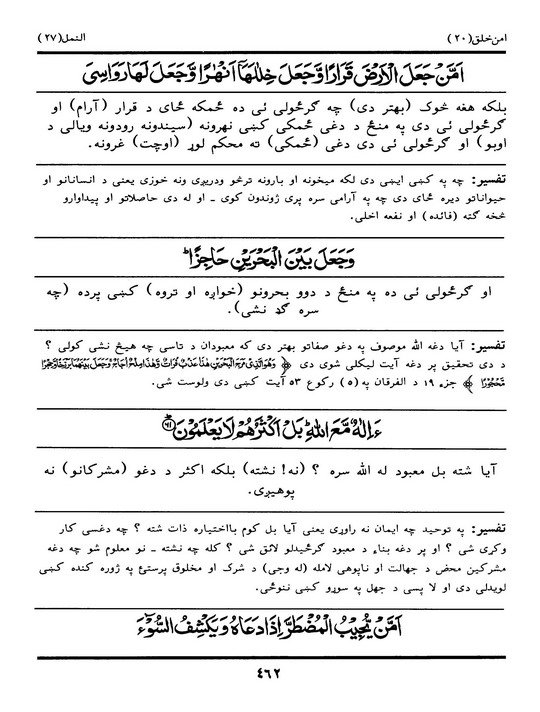 امن خلق (٢٠) النمل (٢٧)
اَمَّنْ جَعَلَ الْاَرْضَ قَرَارًا وَّجَعَلَ خِلٰلَهَآ اَنْهٰرًا وَّجَعَلَ لَهَا رَوَاسِیَ
بلکه هغه څوک (بهتر دی) چه گرځولی ئی ده ځمکه ځای د قرار (آرام) او
گرځولی ئی دی په منځ د دغی ځمکی کښی نهرونه (سیندونه رودونه ویالی د
اوبو) او گرځولی ئی دی دغی (ځمکی) ته محکم لوړ (اوچت) غرونه.
تفسیر: چه په کښی ایښی دی لکه میخونه او بارونه ترڅو ودریږی ونه خوزی یعنی د انسانانو او
حیواناتو دیره ځای دی چه په آرامی سره پری ژوندون کوی ـ او له دی حاصلاتو او پیداوارو
څخه گټه (فائده) او نفعه اخلی.
وَجَعَلَ بَیْنَ الْبَحْرَیْنِ حَاجِزًا ؕ
او گرځولی ئی ده په منځ د دوو بحرونو (خواږه او تروه) کښی پرده (چه
سره گډ نشی).
تفسیر: آیا دغه الله موصوف په دغو صفاتو بهتر دی که معبودان د تاسی چه هیڅ نشی کولی ؟
د دی تحقیق پر دغه آیت لیکلی شوی دی ﴿ وَهُوَالَّذِیْ مَرَجَ الْبَحْرَیْنِ هٰذَا عَذْبٌ فُرَاتٌ وَّهٰذَا مِلْحٌ اُجَاجٌ وَجَعَلَ بَیْنَهُمَا بَرْزَخًا وَّحِجْرًا
مَّحْجُوْرًا ﴾ جزء ١٩ د الفرقان په (٥) رکوع ٥٣ آیت کښی دی ولوست شی.
ءَاِلٰهٌ مَّعَ اللّٰهِ ؕ بَلْ اَكْثَرُهُمْ لَا یَعْلَمُوْنَ ﴿٦١﴾
آیا شته بل معبود له الله سره ؟ (نه! نشته) بلکه اکثر د دغو (مشرکانو) نه
پوهیږی.
تفسیر: په توحید چه ایمان نه راوړی یعنی آیا بل کوم بااختیاره ذات شته ؟ چه دغسی کار
وکړی شی ؟ او پر دغه بناء د معبود گرځیدلو لائق شی ؟ کله چه نشته ـ نو معلوم شو چه دغه
مشرکین محض د جهالت او ناپوهی لامله (له وجی) د شرک او مخلوق پرستئ په ژوره کنده کښی
لویدلی دی او لا پسی د جهل په سوړو کښی ننوځی.
اَمَّنْ یُّجِیْبُ الْمُضْطَرَّ اِذَا دَعَاهُ وَیَكْشِفُ السُّوْٓءَ
٤٦٢